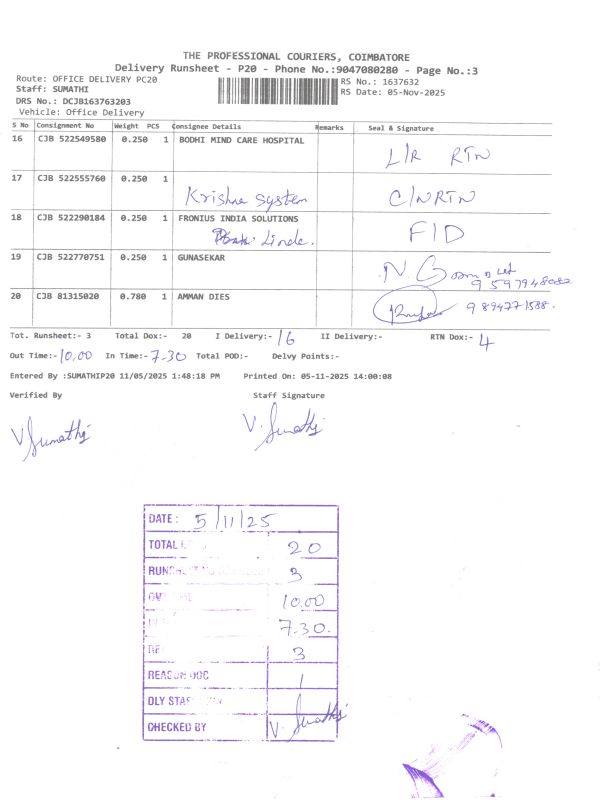 THE PROFESSIONAL COURIERS, COIMBATORE
Delivery Runsheet - P20 - Phone No.:9047080280 - Page No.:3
Route: OFFICE DELIVERY PC20
RS No.: 1637632
Staff: SUMATHI
RS Date: 05-Nov-2025
DRS No.: DCJB163763203
Vehicle: Office Delivery
S No Consignment No Weight PCS Consignee Details Remarks Seal & Signature
16 CJB 522549580 0.250 1 BODHI MIND CARE HOSPITAL L/R RTN
17 CJB 522555760 0.250 1 Krishna System C/N RTN
18 CJB 522290184 0.250 1 FRONIUS INDIA SOLUTIONS F/D
Linde.
19 CJB 522770751 0.250 1 GUNASEKAR
20 CJB 81315020 0.780 1 AMMAN DIES
Tot. Runsheet:- 3 Total Dox:- 20 I Delivery:- 16 II Delivery:- RTN Dox:- 4
Out Time:- 10.00 In Time:- 7.30 Total POD:- Delvy Points:-
Entered By :SUMATHIP20 11/05/2025 1:48:18 PM Printed On: 05-11-2025 14:00:08
Verified By Staff Signature
V. Sumathi V. Sumathi
DATE : 5/11/25
TOTAL 20
3
10.00
7.30.
3
REASON DOC 1
DLY
CHECKED BY V. Sumathi